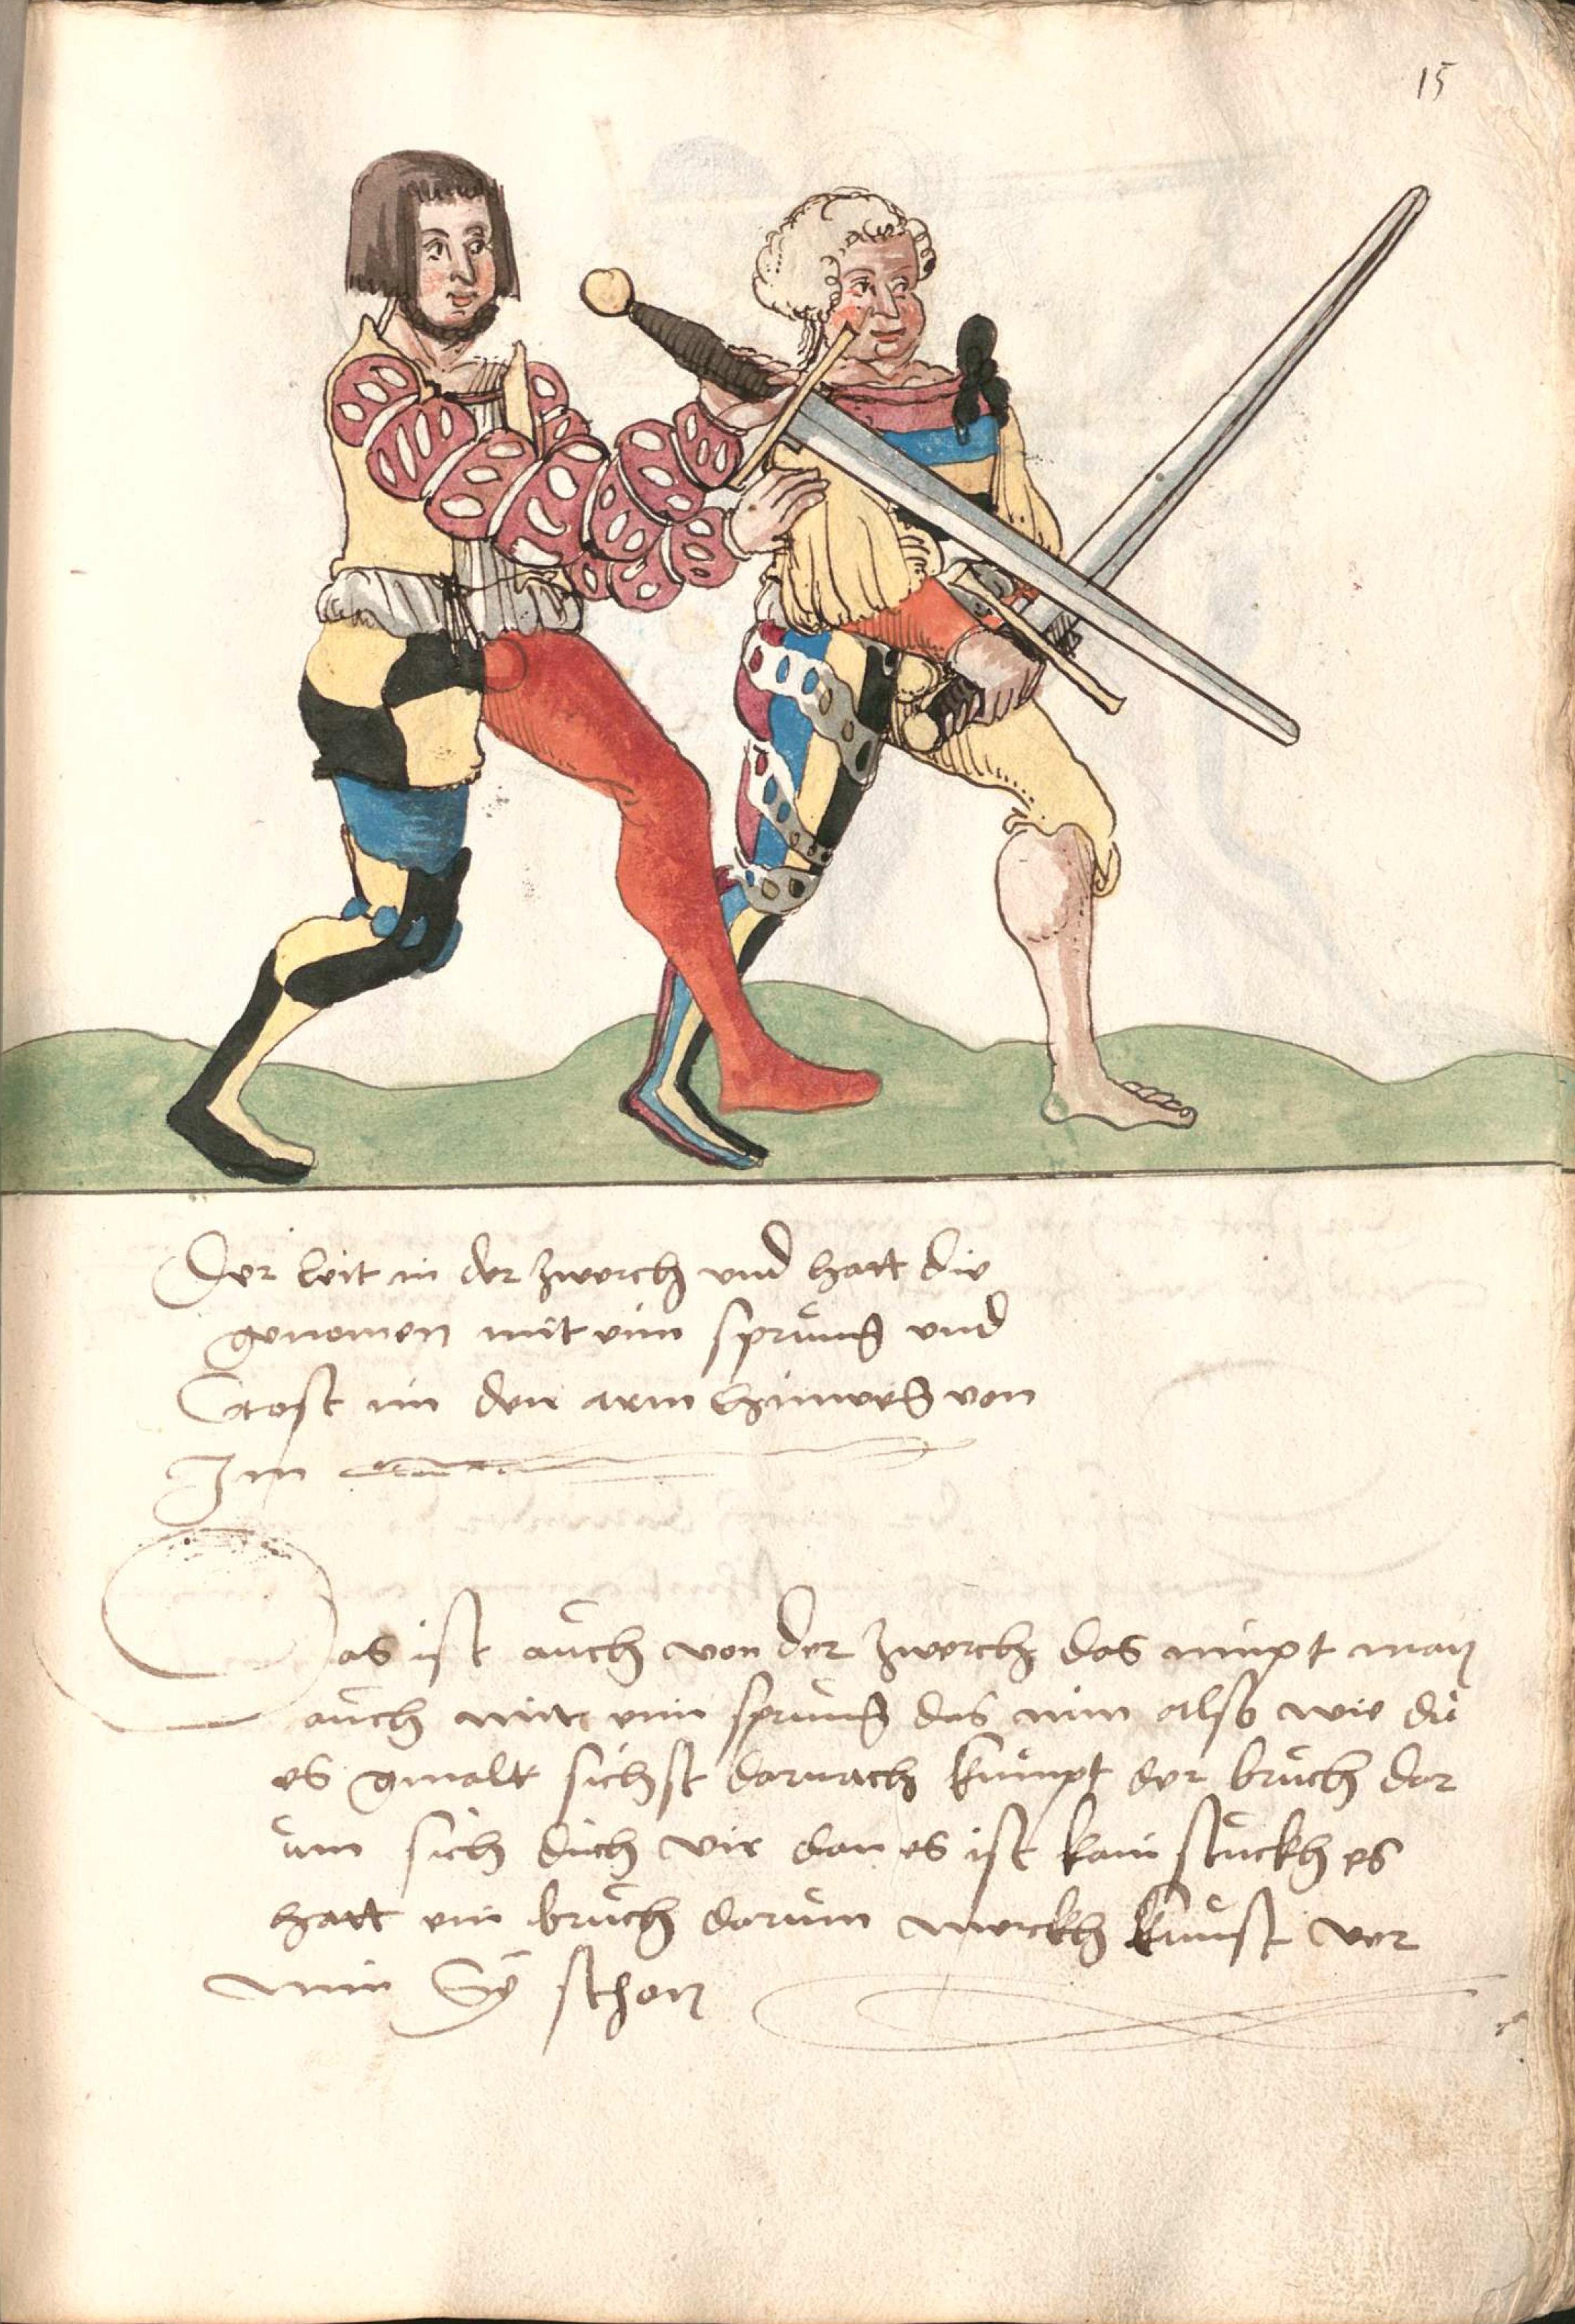 15
Der leit in der zwerch und hatt die
genomen mit eim sprung und
Stost im den arm hinweg von
Im
Das ist auch von der zwerch das nimpt man
auch mit eim sprung das nim also wie du
es gmalt sichst darnach kumpt der bruch dar
um sich dich vir dan es ist kain stuckh es
hatt ein bruch darum merckh kunst ver
nim Sy schon